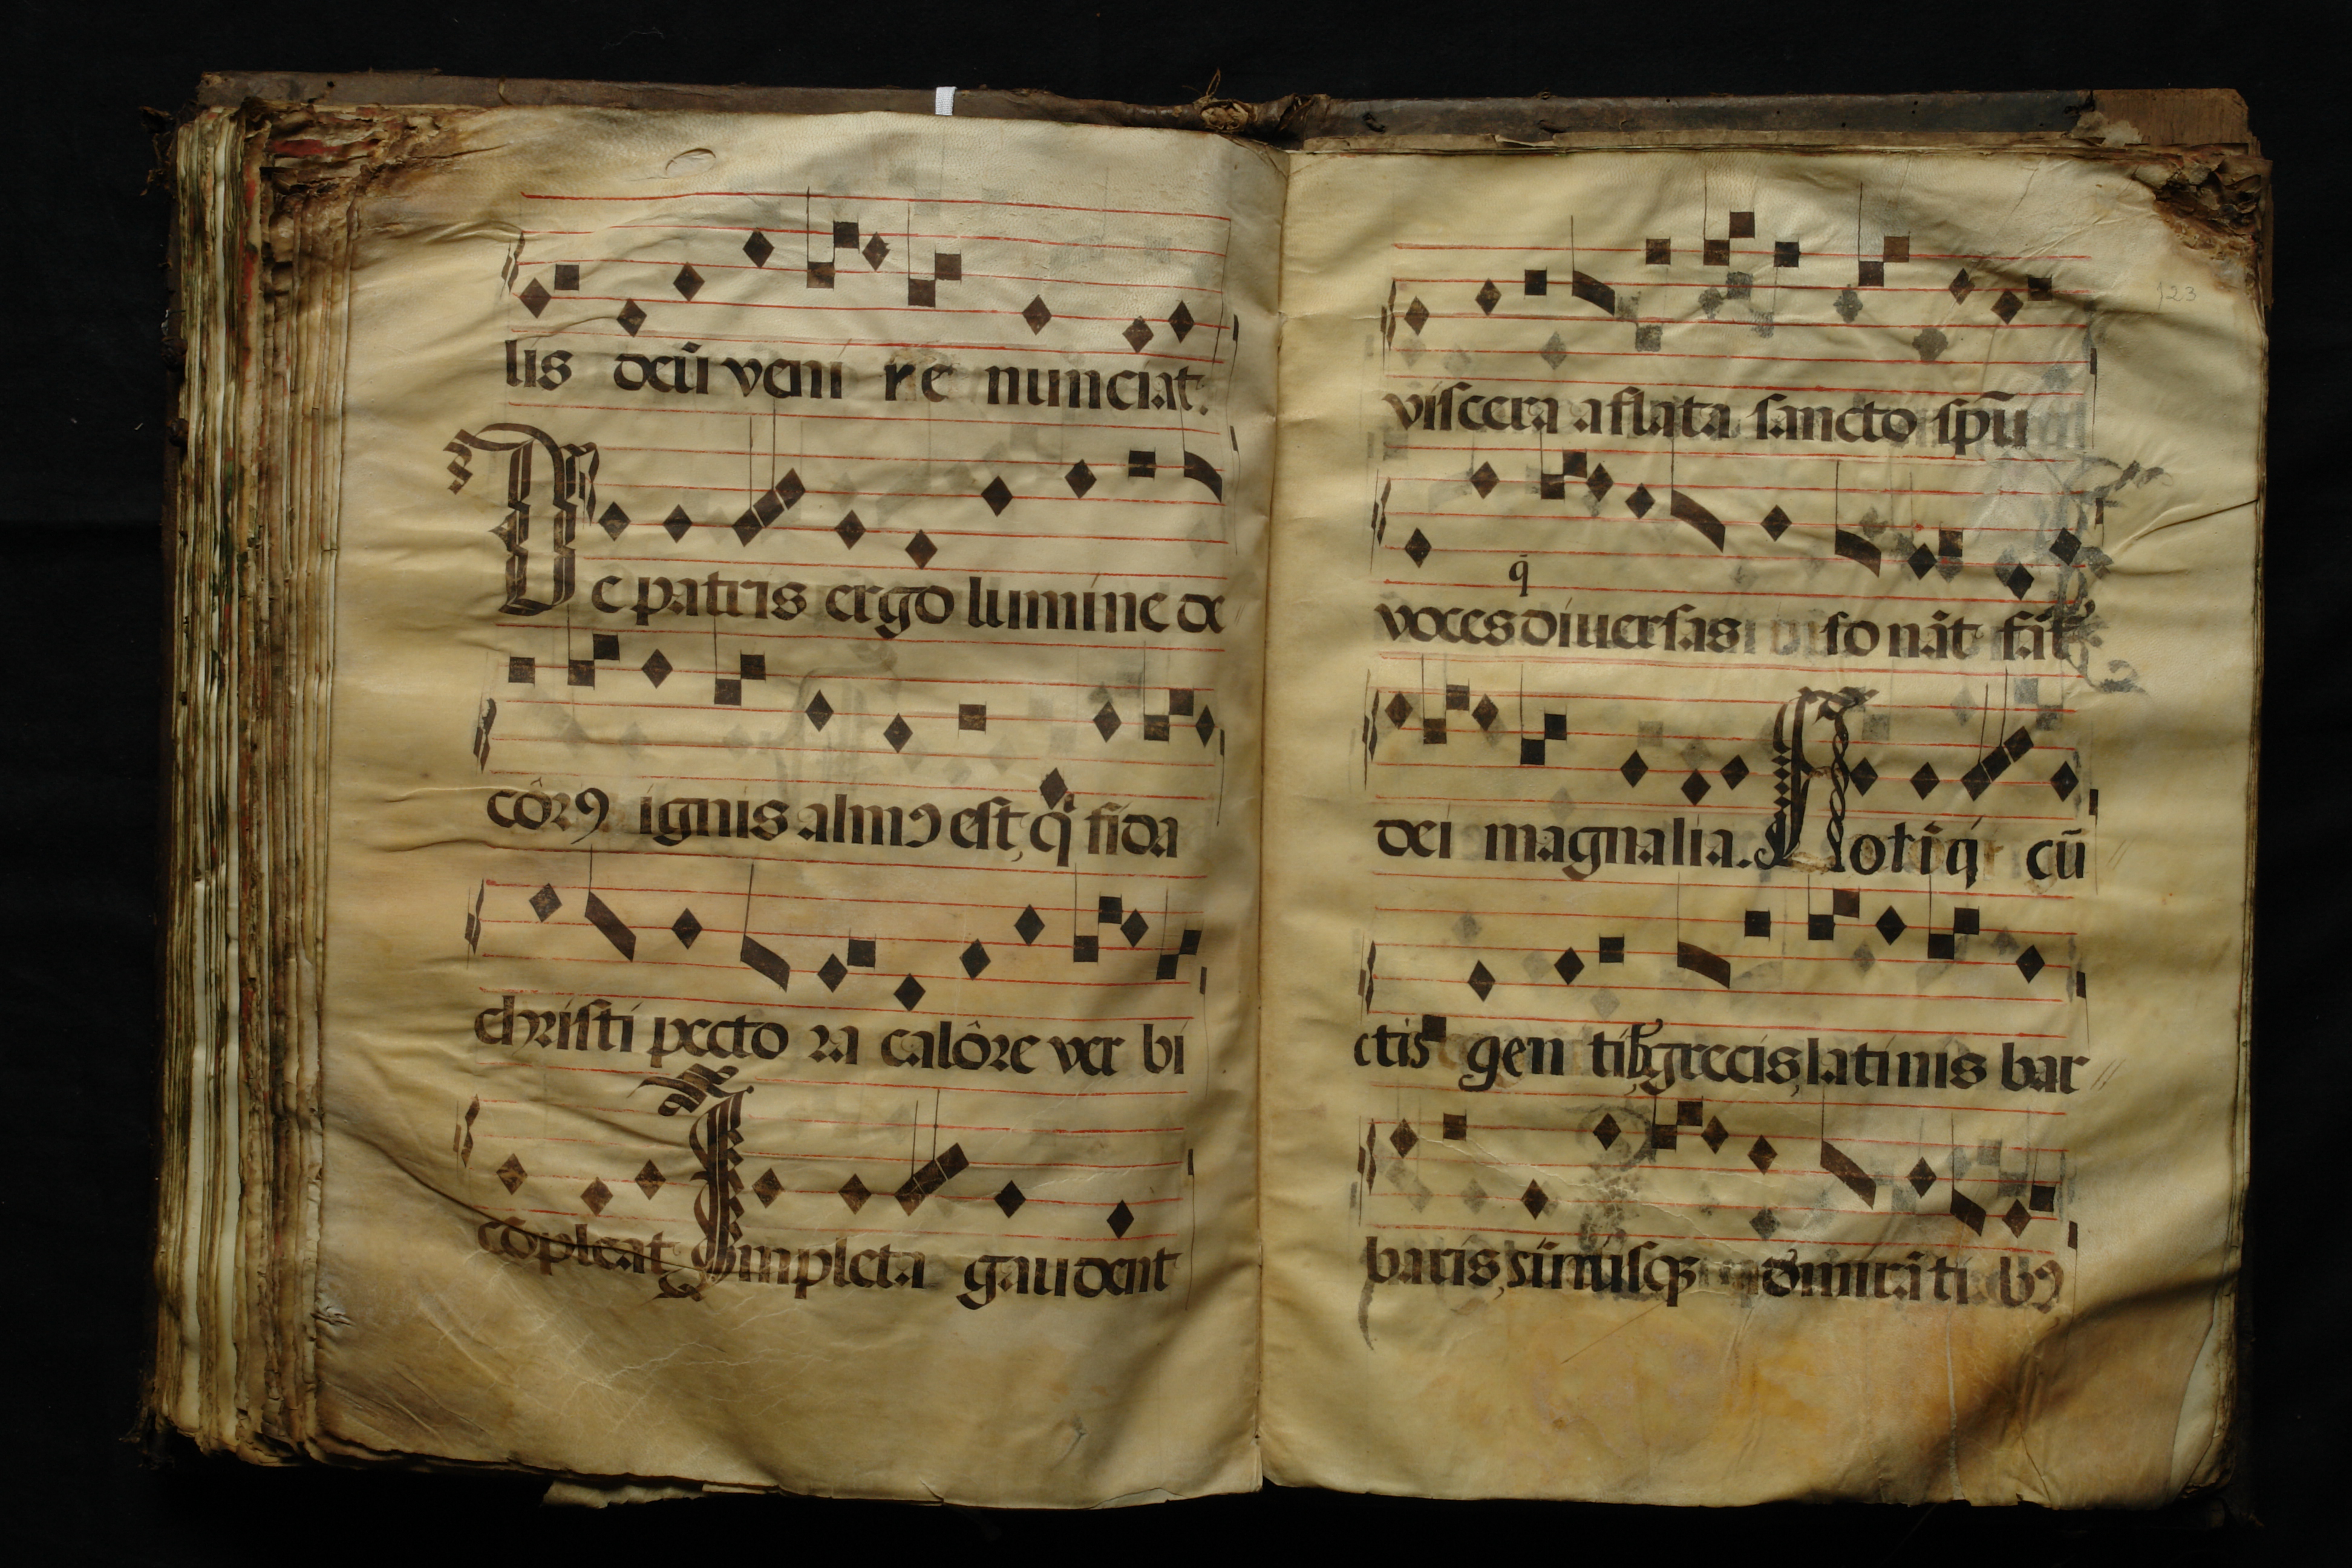 lis deū veni re nunciat.
De patris ergo lumine de
côrꝰ ignis almꝰ est, q̇ fida
christi pecto ra calôre ver bi
cōpleat Impleta gaudent
123
viscera aflata sancto spū
q̄
voces diuersas so nāt fāt
dei magnalia. Notiq̇ cū
ctis gen tibꝫ grecis, latinis bar
baris, simulqꝫ admirāti bꝰ